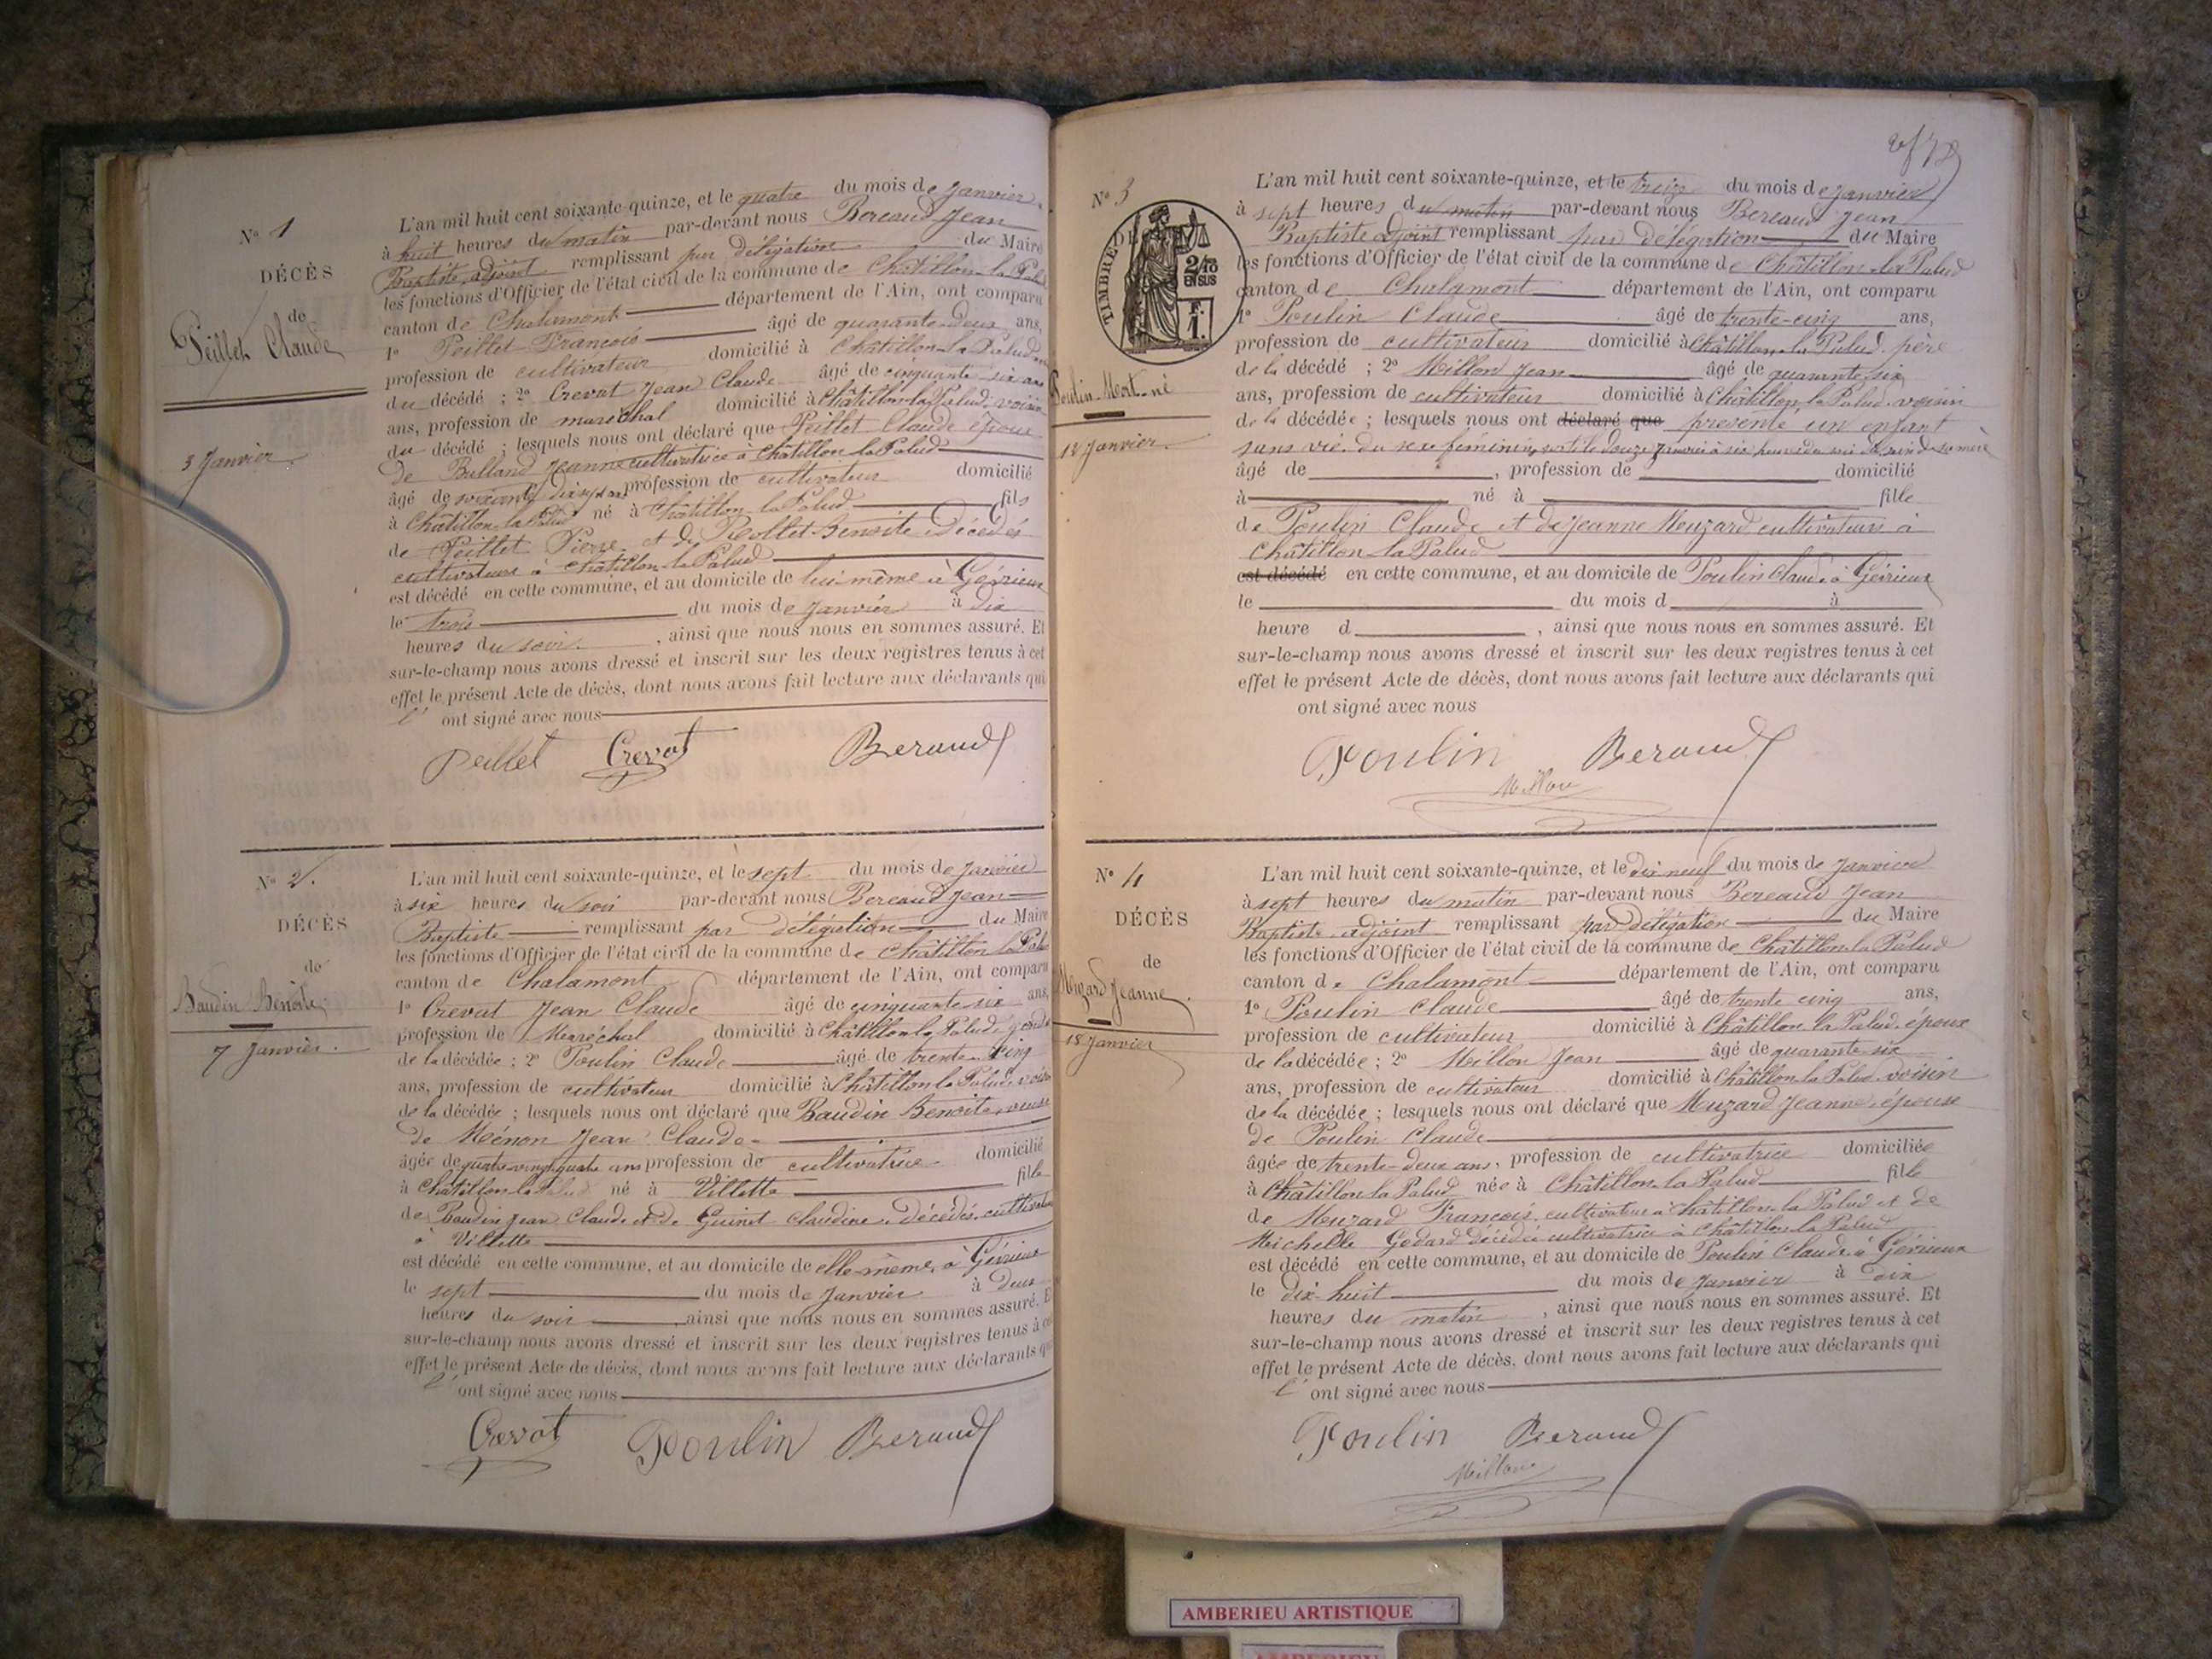 N° 1
DÉCÈS
de
Peillet Claude
3 Janvier
L'an mil huit cent soixante-quinze, et le quatre du mois de Janvier
à huit heures du matin par-devant nous Bereaud Jean
Baptiste adjoint remplissant par délégation du Maire
les fonctions d'Officier de l'état civil de la commune de Châtillon la Palud
canton de Chalamont département de l'Ain, ont comparu
1° Peillet François âgé de quarante-deux ans,
profession de cultivateur domicilié à Châtillon-la-Palud
du décédé ; 2° Crevat Jean Claude âgé de cinquante six ans
ans, profession de maréchal domicilié à Châtillon-la-Palud, voisin
du décédé ; lesquels nous ont déclaré que Peillet Claude époux
de Balland Jeanne cultivatrice à Châtillon la Palud
âgé de profession de cultivateur domicilié
à Châtillon-la-Palud né à Châtillon-la-Palud fils
de Peillet Pierre et de Benoite Décédés
cultivateurs à Châtillon-la-Palud
est décédé en cette commune, et au domicile de lui-même à Gévrieux
le trois du mois de Janvier à dix
heures du soir , ainsi que nous nous en sommes assuré. Et
sur-le-champ nous avons dressé et inscrit sur les deux registres tenus à cet
effet le présent Acte de décès, dont nous avons fait lecture aux déclarants qui
l' ont signé avec nous
Peillet Crevat Beraud
N° 2.
DÉCÈS
de
Baudin Benoite
7 Janvier.
L'an mil huit cent soixante-quinze, et le sept du mois de Janvier
à six heures du soir par-devant nous Bereaud Jean
Baptiste remplissant par délégation du Maire
les fonctions d'Officier de l'état civil de la commune de Châtillon la Palud
canton de Chalamont département de l'Ain, ont comparu
1° Crevat Jean Claude âgé de cinquante six ans,
profession de Maréchal domicilié à Châtillon la Palud, gendre
de la décédée ; 2° Poulin Claude âgé de trente-cinq
ans, profession de cultivateur domicilié à Châtillon la Palud, voisin
de la décédée ; lesquels nous ont déclaré que Baudin Benoite veuve
de Ménon Jean Claude
âgée de quatre-vingt-quatre ans profession de cultivatrice domicilié
à Châtillon la Palud né à Villette fille
de Baudin Jean Claude et de Guinet Claudine, Décédés, cultivateurs
à Villette
est décédé en cette commune, et au domicile de elle-même, à Gévrieux
le sept du mois de Janvier à Deux
heures du soir ainsi que nous nous en sommes assuré. E
sur-le-champ nous avons dressé et inscrit sur les deux registres tenus à ce
effet le présent Acte de décès, dont nous avons fait lecture aux déclarants qu
l' ont signé avec nous
Crevat Poulin Beraud
N° 3
TIMBRE DE
2/10
EN SUS
F.
1.
Poulin Mort-né
12 Janvier
L'an mil huit cent soixante-quinze, et le treize du mois de Janvier
à sept heures du matin par-devant nous Bereaud Jean
Baptiste Adjoint remplissant par délégation du Maire
les fonctions d'Officier de l'état civil de la commune de Châtillon-la-Palud
canton de Chalamont département de l'Ain, ont comparu
1° Poulin Claude âgé de trente-cinq ans,
profession de cultivateur domicilié à Châtillon-la-Palud père
de la décédé ; 2° Millon Jean âgé de quarante six
ans, profession de cultivateur domicilié à Châtillon la Palud, voisin
de la décédée ; lesquels nous ont déclaré que présenté un enfant
sans vie, du sexe féminin, sorti le douze Janvier à six heures du soir du sein de sa mère
âgé de , profession de domicilié
à né à fille
de Poulin Claude et de Jeanne Muzard cultivateurs à
Châtillon-la-Palud
est décédé en cette commune, et au domicile de Poulin Claude à Gévrieux
le du mois d à
heure d , ainsi que nous nous en sommes assuré. Et
sur-le-champ nous avons dressé et inscrit sur les deux registres tenus à cet
effet le présent Acte de décès, dont nous avons fait lecture aux déclarants qui
ont signé avec nous
Poulin Beraud
Millon
N° 4
DÉCÈS
de
Muzard Jeanne.
18 Janvier
L'an mil huit cent soixante-quinze, et le dix neuf du mois de Janvier
à sept heures du matin par-devant nous Bereaud Jean
Baptiste adjoint remplissant par délégation du Maire
les fonctions d'Officier de l'état civil de la commune de Châtillon-la-Palud
canton de Chalamont département de l'Ain, ont comparu
1° Poulin Claude âgé de trente cinq ans,
profession de cultivateur domicilié à Châtillon la Palud, époux
de la décédée ; 2° Millon Jean âgé de quarante-six
ans, profession de cultivateur domicilié à Châtillon-la-Palud voisin
de la décédée ; lesquels nous ont déclaré que Muzard Jeanne, épouse
de Poulin Claude
âgée de trente-deux ans, profession de cultivatrice domiciliée
à Châtillon la Palud née à Châtillon-la-Palud fille
de Muzard François, cultivateur à Châtillon-la-Palud et de
Michelle Godard décédée cultivatrice à Châtillon-la-Palud
est décédé en cette commune, et au domicile de Poulin Claude à Gévrieux
le Dix-huit du mois de Janvier à Dix
heures du matin , ainsi que nous nous en sommes assuré. Et
sur-le-champ nous avons dressé et inscrit sur les deux registres tenus à cet
effet le présent Acte de décès, dont nous avons fait lecture aux déclarants qui
l' ont signé avec nous
Poulin Beraud
Millon
AMBERIEU ARTISTIQUE
AMBERIEU